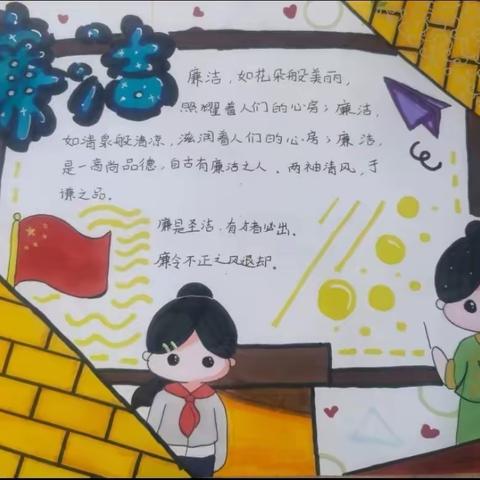 廉洁
廉洁，如花朵般美丽，
照耀着人们的心房；廉洁，
如清泉般清凉，滋润着人们的心房；廉洁，
是一高尚品德，自古有廉洁之人、两袖清风，于
谦之品。
廉是圣洁，有才者必出。
廉令不正之风退却。